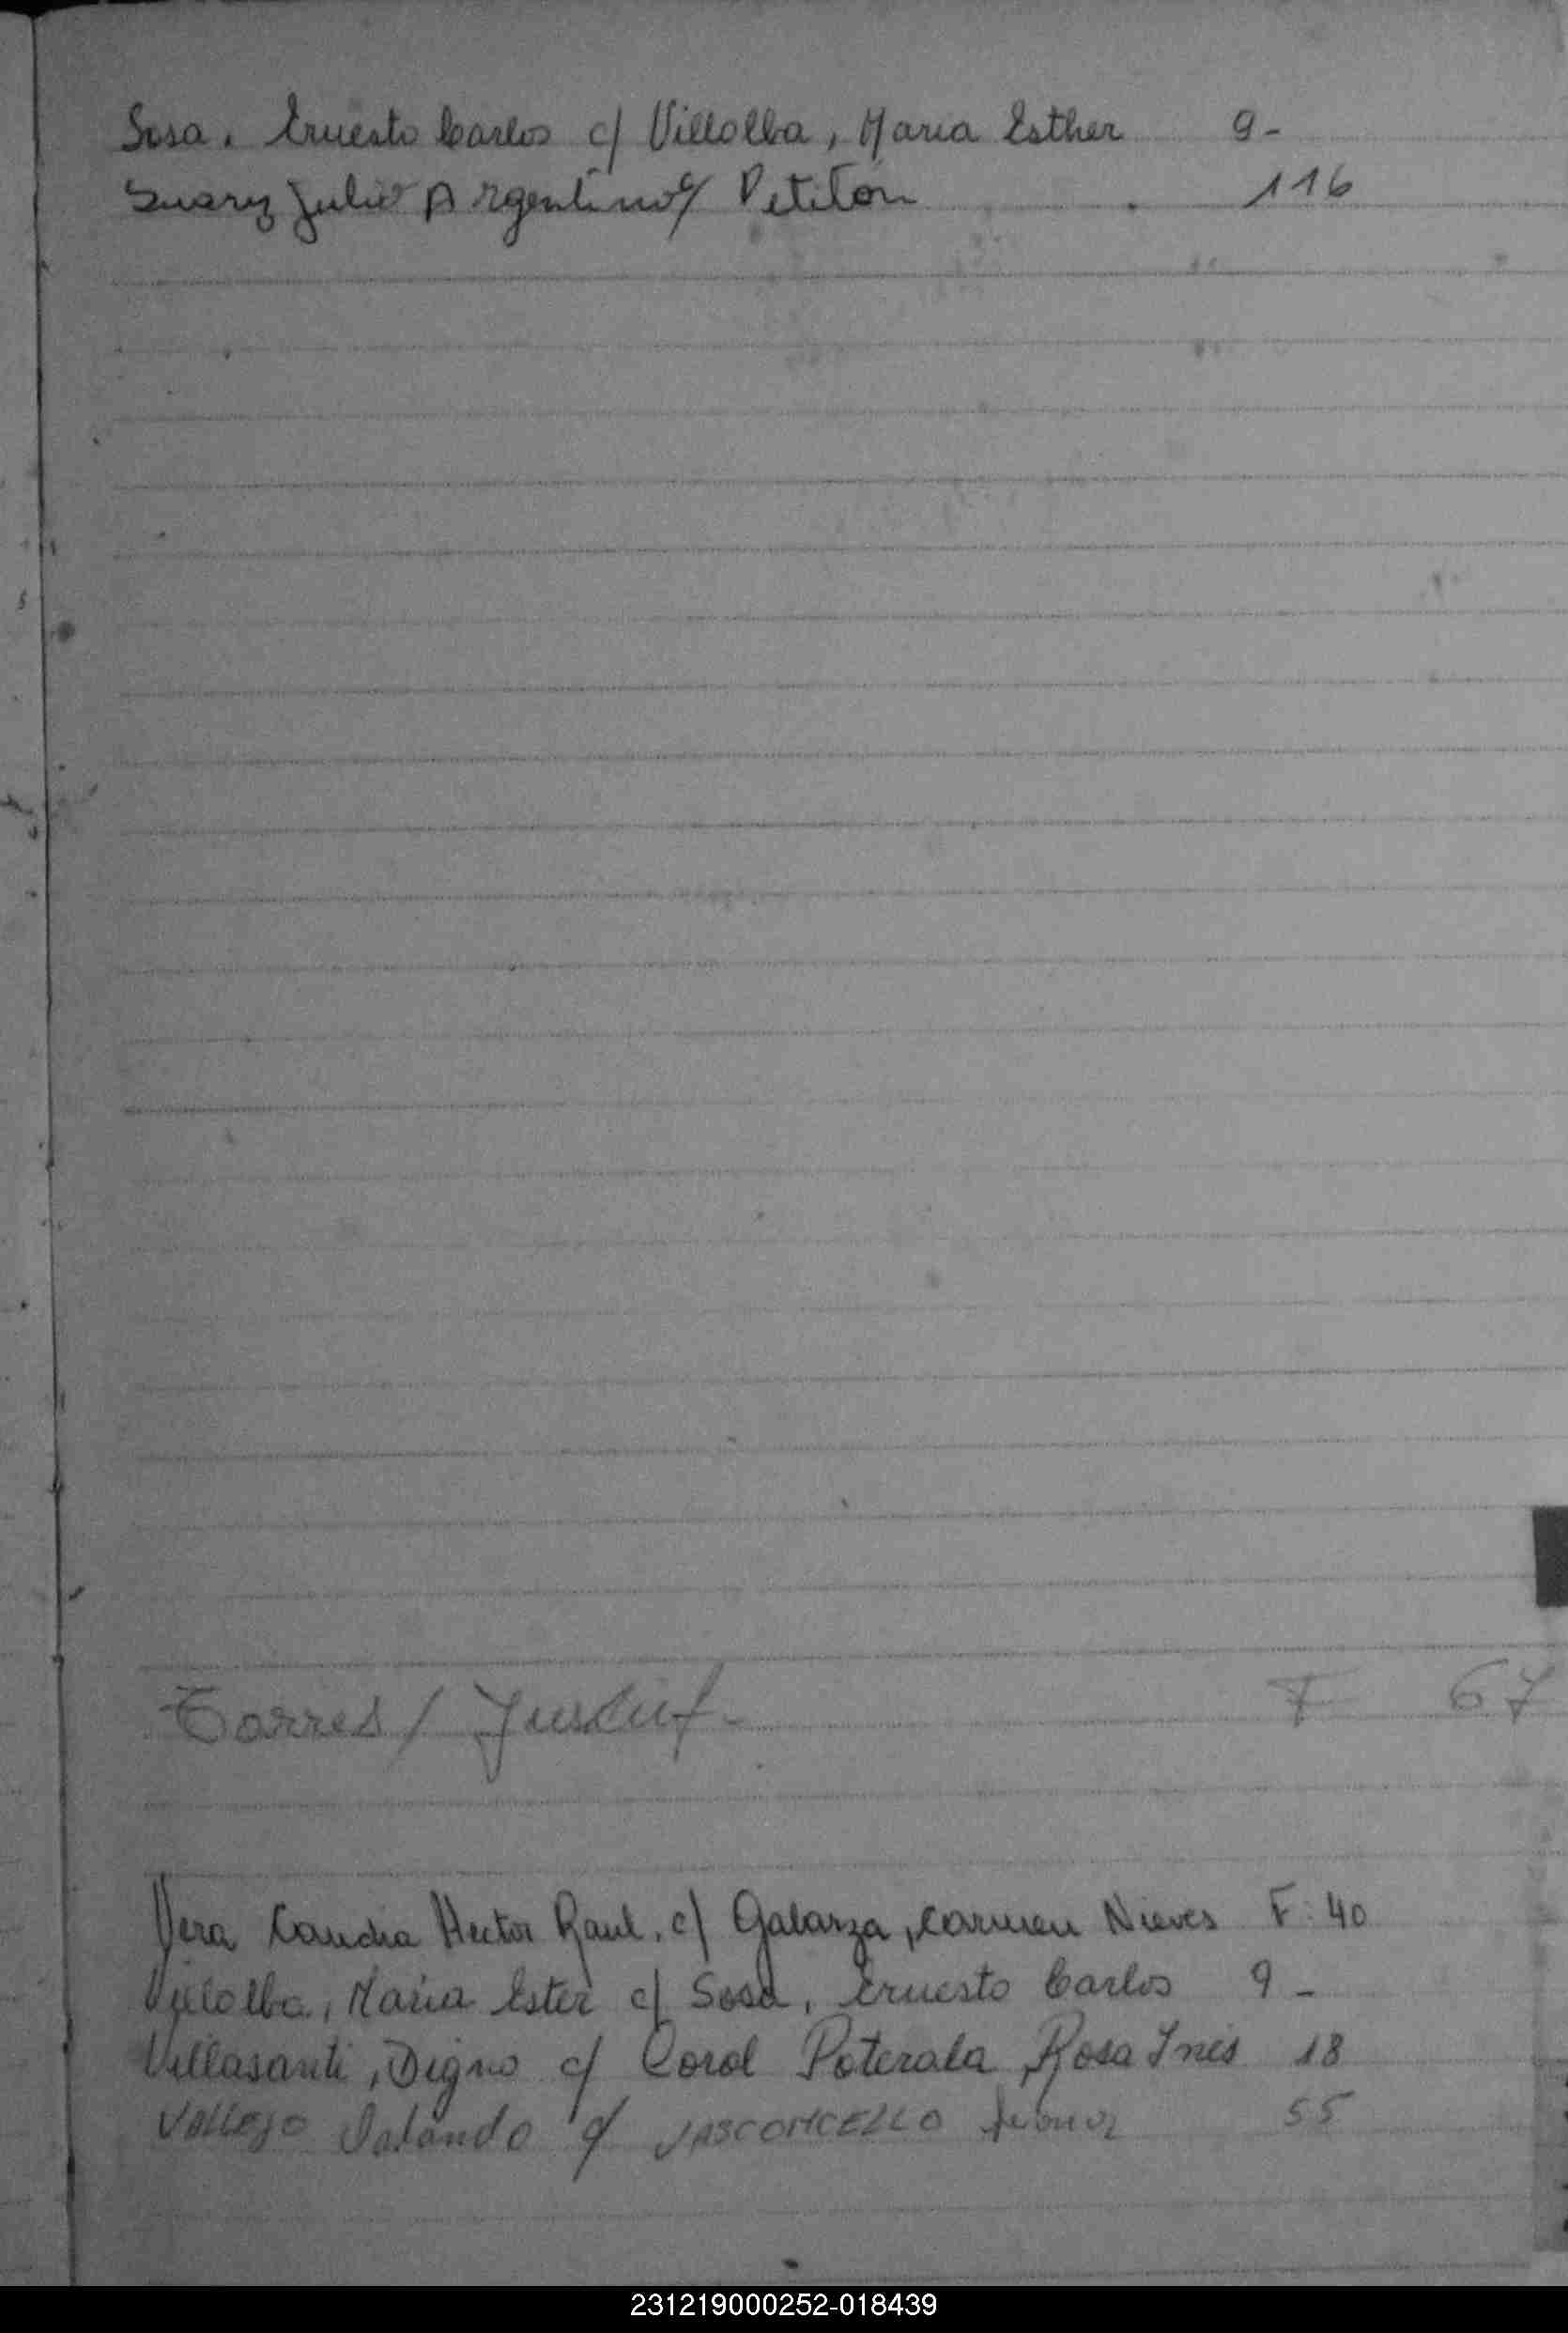 Sosa. Ernesto Carlos c/ Villalba, Maria Esther 9-
Suarez Julio Argentino c/ Petitón 116
Torres / F 67
Vera Hector Raul, c/ Galarza, Carmen Nieves F: 40
Villalba, Maria Ester c/ Sosa, Ernesto Carlos 9-
Villasanti, Digno c/ Corol Poterala, Rosa Ines 18
VALLEJO c/ VASCONCELLO 55
231219000252-018439